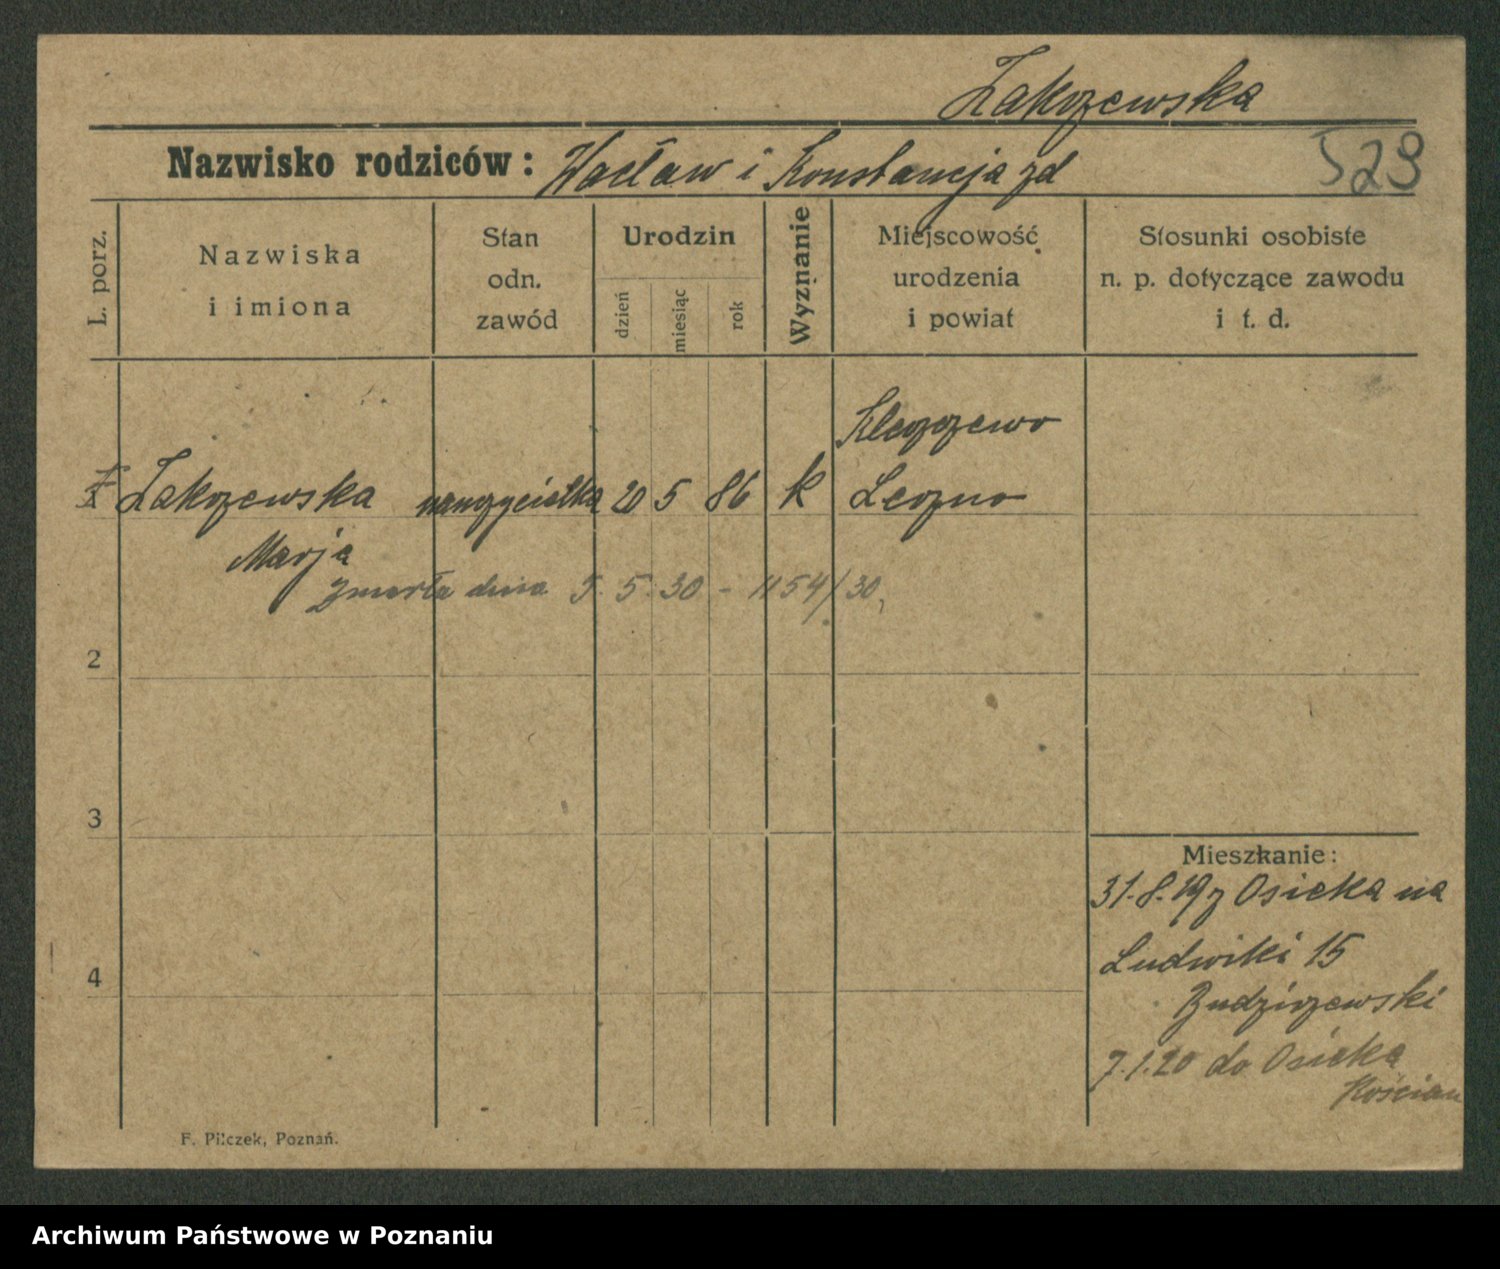 Zakrzewska
Nazwisko rodziców: Wacław i Konstancja zd
529
L. porz.
Nazwiska
i imiona
Stan
odn.
zawód
Urodzin
dzień
miesiąc
rok
Wyznanie
Miejscowość
urodzenia
i powiat
Stosunki osobiste
n. p. dotyczące zawodu
i t. d.
Kleszczewo
1 Zakrzewska nauczycielka 20 5 86 k Leszno
Marja
zmarła dnia 5. 5. 30 - 1154/30,
2
3
4
Mieszkanie:
31.8.19 z Osieka na
Ludwiki 15
Budziszewski
7.1.20 do Osieka
Kościan
F. Pilczek, Poznań.
Archiwum Państwowe w Poznaniu